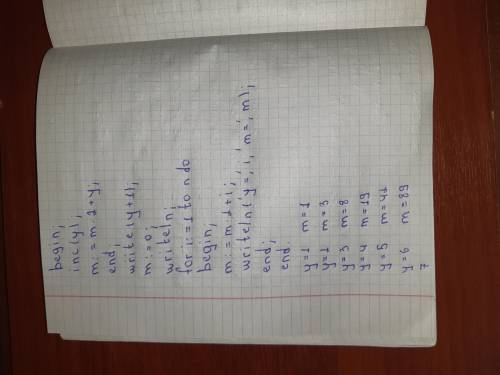 begin;
inc(y);
m:=m·2+y;
end;
write(y+1);
m:=0;
writeln;
for i:=1 to n do
begin;
m:=m·2+i;
writeln('y=', i, 'm=', m);
end;
end.
y=1 m=1
y=2 m=3
y=3 m=8
y=4 m=19
y=5 m=41
y=6 m=89
7